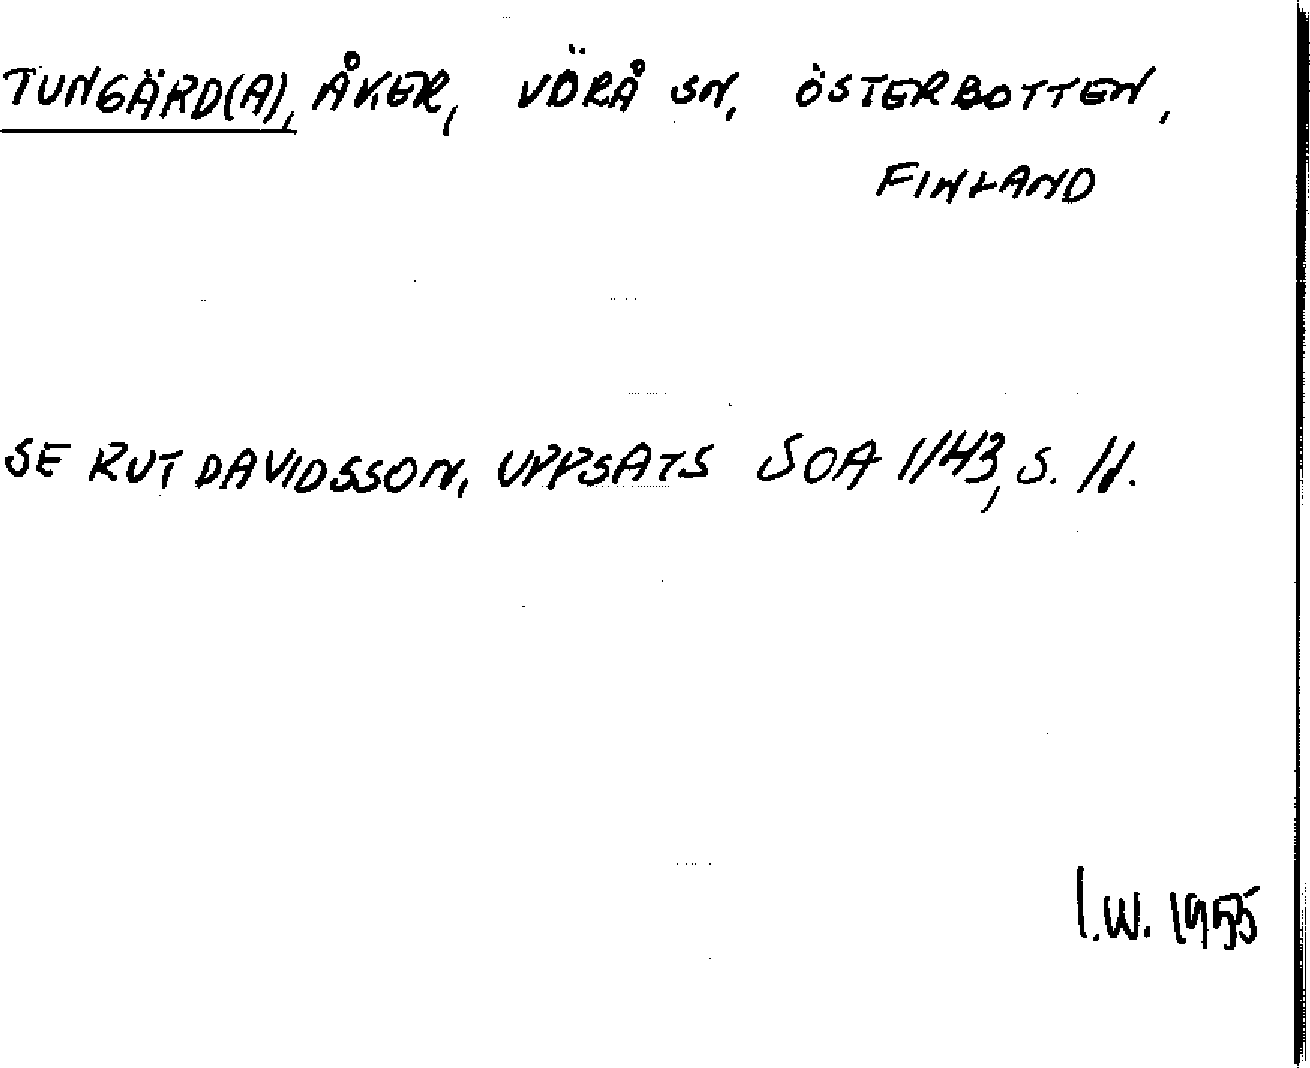 TUNGÄRD(A), ÅKER, VÖRÅ SN, ÖSTERBOTTEN,
FINLAND
SE RUT DAVIDSSON, UPPSATS SOA 1143, S. 11.
I.W. 1955